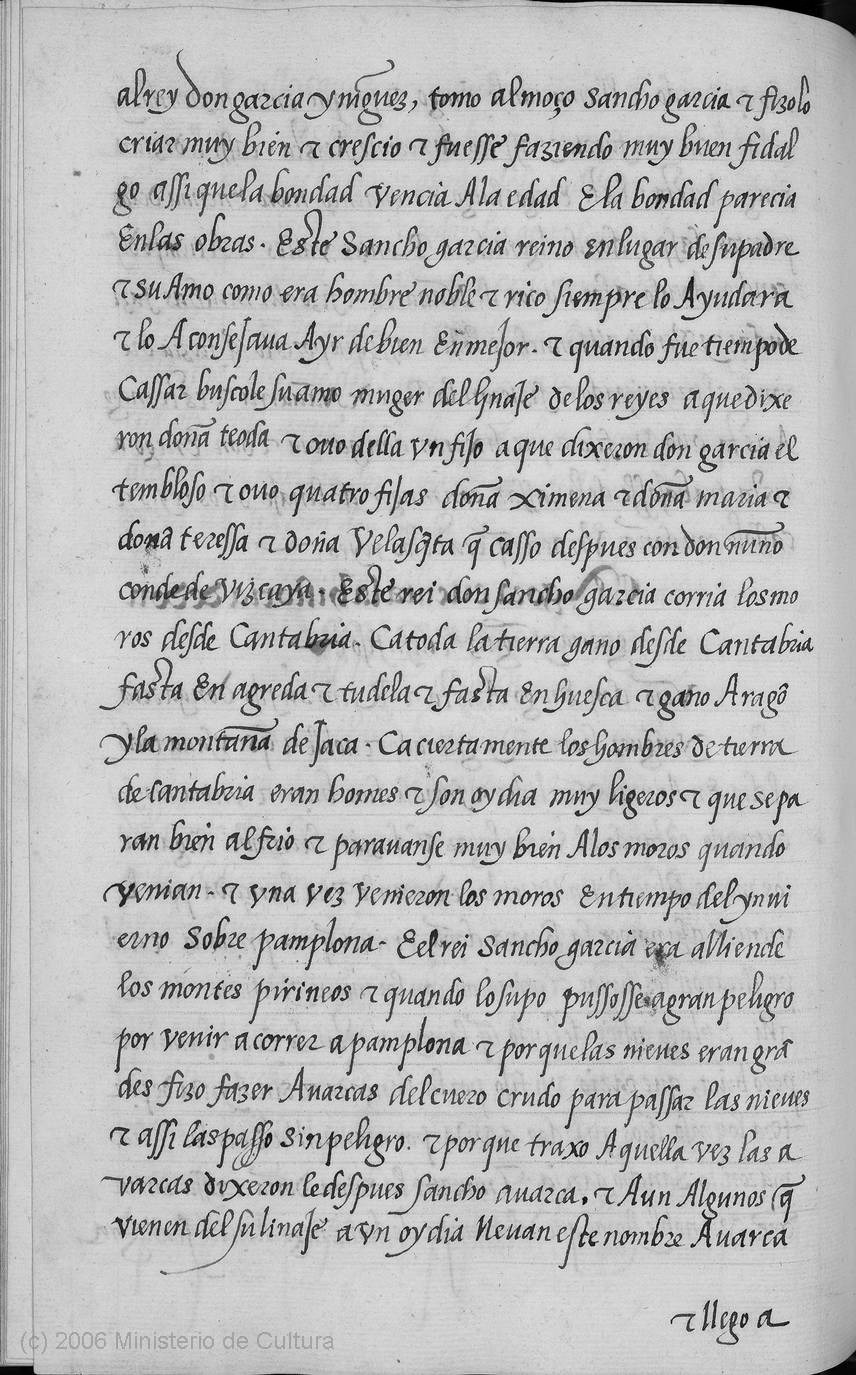 al rey don garcia ynīguez, tomo al moço sancho garcia τ fizolo
criar muy bien τ crescio τ fuesse faziendo muy buen fidal
go assi que la bondad vencia A la edad E la bondad parecia
En las obras. Este Sancho garcia reino en lugar de su padre
τ su Amo como era hombre noble τ rico siempre lo Ayudara
τ lo AconseJaua A yr de bien En meJor. τ quando fue tiempo de
Cassar buscole su amo muger del linaJe de los reyes a que dixe
ron doña teoda τ ouo della vn fiJo a que dixeron don garcia el
tembloso τ ouo quatro fiJas doña ximena τ doña maria τ
doña teressa τ doña Velasq̃ta q̃ casso despues con don nuño
conde de Vizcaya. Este rei don sancho garcia corria los mo
ros desde Cantabria. Ca toda la tierra gano desde Cantabria
fasta En agreda τ tudela τ fasta En huesca τ gano Aragõ
y la montaña de Jaca. Ca ciertamente los hombres de tierra
de Cantabria eran homes τ son oy dia muy ligeros τ que se pa
ran bien al frio τ parauanse muy bien A los moros quando
venian. τ vna vez venieron los moros En tiempo del ynui
erno Sobre pamplona. E el rei Sancho garcia era alliende
los montes pirineos τ quando lo supo pussosse a gran peligro
por venir a correr a pamplona τ por que las nieves eran grã
des fizo fazer Auarcas del cuero crudo para passar las nieves
τ assi las passo sin peligro. τ por que traxo Aquella vez las a
varcas dixeron le despues sancho auarca. τ Aun Algunos q̃
vienen del su linaJe a vn oy dia lleuan este nombre Auarca
τ llego a
(c) 2006 Ministerio de Cultura